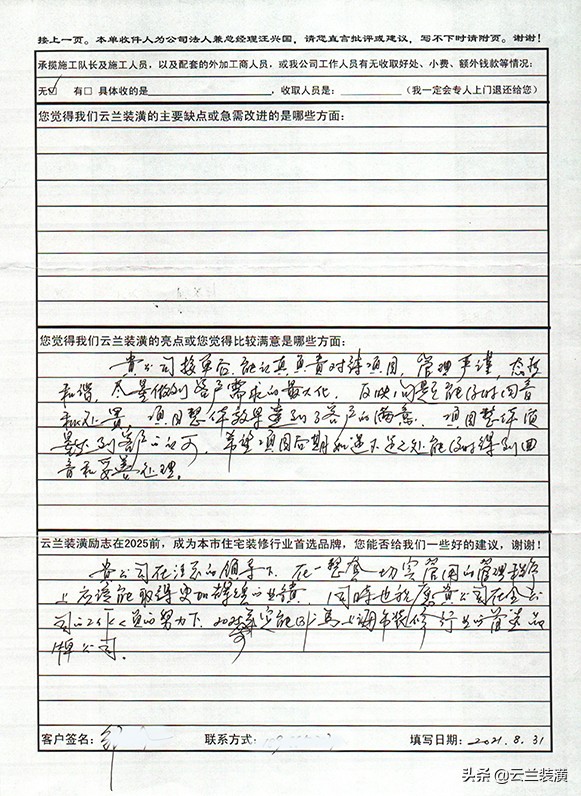 接上一页。本单收件人为公司法人兼总经理汪兴国，请您直言批评或建议，写不下时请附页。谢谢！
承揽施工队长及施工人员，以及配套的外加工商人员，或我公司工作人员有无收取好处、小费、额外钱款等情况：
无☑ 有□ 具体收的是 ，收取人员是： （我一定会专人上门退还给您）
您觉得我们云兰装潢的主要缺点或急需改进的是哪些方面：
您觉得我们云兰装潢的亮点或您觉得比较满意是哪些方面：
贵公司接单后，能认真负责对待项目，管理严谨，态度
和谐，尽量做到客户需求的最大化，反映问题能及时回音
和处置，项目整体效果达到了客户的满意，项目整体质
量达到客户的认可，希望项目后期如遇不足之处能及时得到回
音和妥善处理。
云兰装潢励志在2025前，成为本市住宅装修行业首选品牌，您能否给我们一些好的建议，谢谢！
贵公司在汪总的领导下，在一整套切实管用的管理
上应该能取得更加辉煌的业绩，同时也祝愿贵公司在全公
司的努力下，2025年定能成为上海市装修行业的首选品
牌公司。
客户签名： 联系方式： 填写日期：2021.8.31
头条@云兰装潢